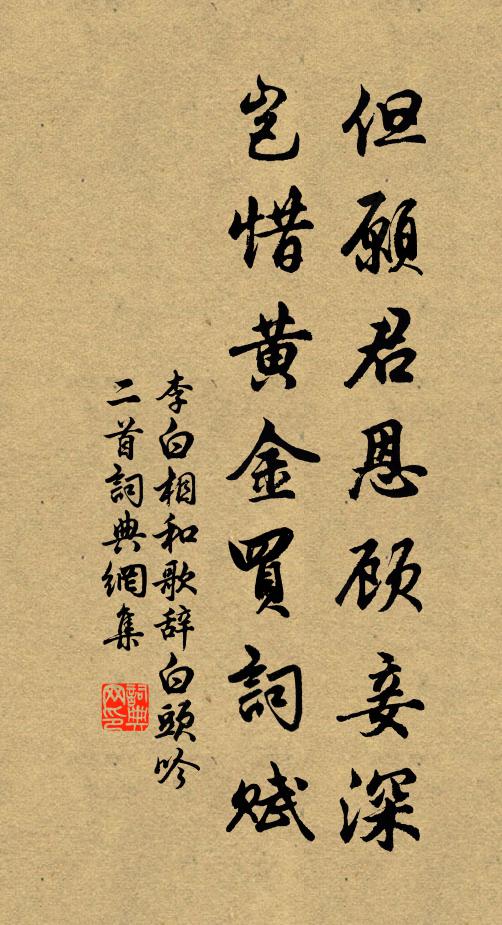 但願君恩顾妾深
岂惜黄金買詞赋
李白相和歌辞白頭吟
二首詞典網集
詞典
网印